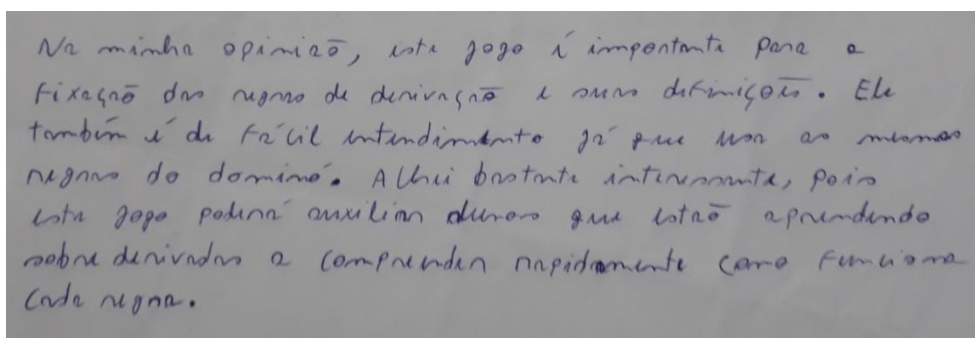 Na minha opinião, este jogo é importante para a
fixação das regras de derivação e suas definições. Ele
também é de fácil entendimento já que usa as mesmas
regras do dominó. Achei bastante interessante, pois
este jogo poderá auxiliar alunos que estão aprendendo
sobre derivadas a compreender rapidamente como funciona
cada regra.